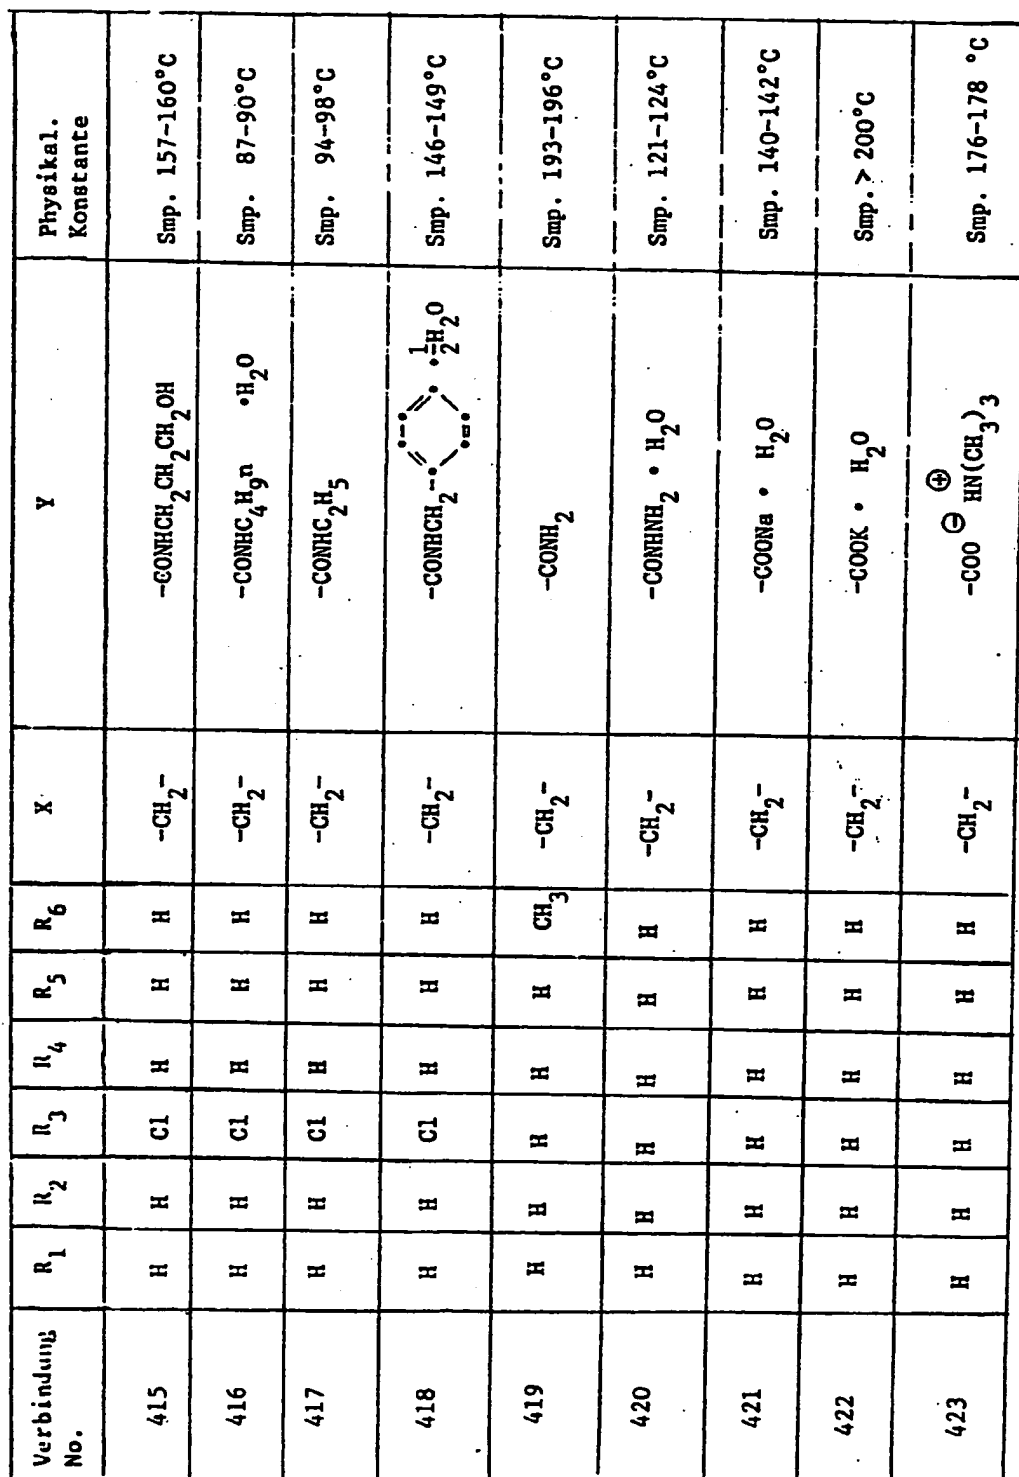 Verbindung No. R1 R2 R3 R4 R5 R6 X Y Physikal. Konstante
415 H H Cl H H H -CH2- -CONHCH2CH2CH2OH Smp. 157-160°C
416 H H Cl H H H -CH2- -CONHC4H9n •H2O Smp. 87-90°C
417 H H Cl H H H -CH2- -CONHC2H5 Smp. 94-98°C
418 H H Cl H H H -CH2- -CONHCH2- •1/2H2O Smp. 146-149°C
419 H H H H H CH3 -CH2- -CONH2 Smp. 193-196°C
420 H H H H H H -CH2- -CONHNH2 • H2O Smp. 121-124°C
421 H H H H H H -CH2- -COONa • H2O Smp. 140-142°C
422 H H H H H H -CH2- -COOK • H2O Smp. > 200°C
423 H H H H H H -CH2- -COO ⊖ ⊕ HN(CH3)3 Smp. 176-178 °C